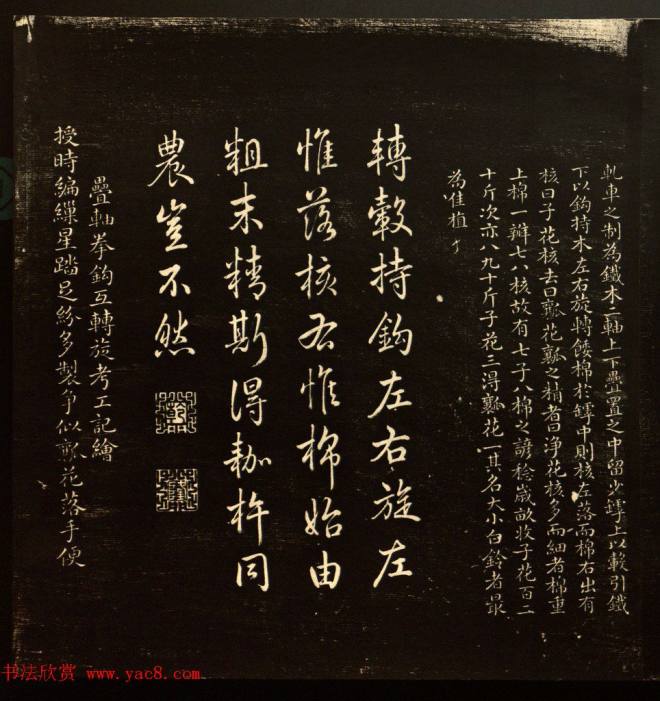 軋車之制為鐵木二軸上下疊置之中留少罅上以轂引鐵
下以鈎持木左右旋轉餧棉於罅中則核左落而棉右出有
核曰子花核去曰瓤花瓤之精者曰净花核多而細者棉重
上棉一瓣七八核故有七子八棉之諺稔歲畝收子花百二
十斤次亦八九十斤子花三得瓤花一其名大小白鈴者最
為唯植
轉轂持鈎左右旋左
惟落核右惟棉始由
粗末精斯得耞杵同
農豈不然
疊軸拳鈎互轉旋考工記繪
授時編繅星踏足紛多製争似瓤花落手便
书法欣赏 www.yac8.com